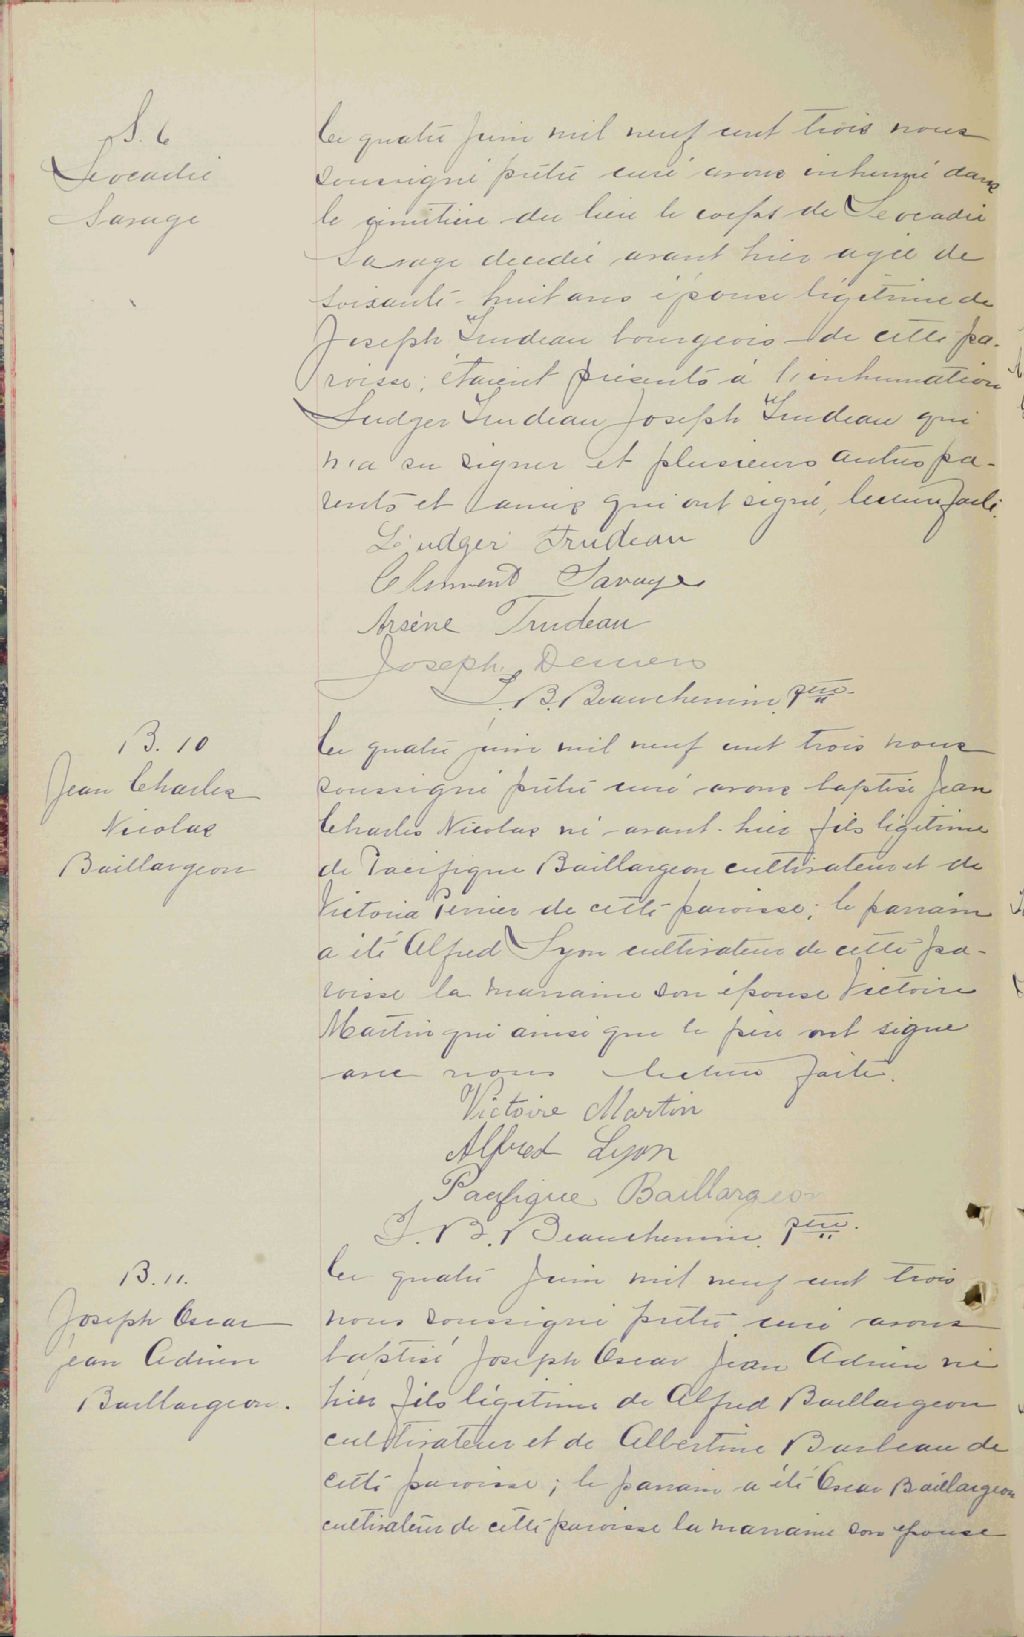 S. 6
Léocadie
Savage
Le quatre Juin mil neuf cent trois nous
soussigné prêtre curé avons inhumé dans
le cimetière du lieu le corps de Léocadie
Savage décédée avant hier agée de
soixante-huit ans épouse légitime de
Joseph Trudeau bourgeois de cette pa-
roisse; étaient présents à l'inhumation
Ludger Trudeau Joseph Trudeau qui
n'a su signer et plusieurs autres pa-
rents et amis qui ont signé, lecture faite.
Ludger Trudeau
Clément Savage
Arsène Trudeau
Joseph Demers
J. B. Beauchemin, ptre
B. 10
Jean Charles
Nicolas
Baillargeon
Le quatre juin mil neuf cent trois nous
soussigné prêtre curé avons baptisé Jean
Charles Nicolas né avant-hier fils légitime
de Pacifique Baillargeon cultivateur et de
Victoria Perrier de cette paroisse; le parrain
a été Alfred Lyon cultivateur de cette pa-
roisse la marraine son épouse Victoire
Martin qui ainsi que le père ont signé
avec nous lecture faite.
Victoire Martin
Alfred Lyon
Pacifique Baillargeon
J. B. Beauchemin, ptre.
B. 11.
Joseph Oscar
jean Adrien
Baillargeon.
Le quatre Juin mil neuf cent trois
nous soussigné prêtre curé avons
baptisé Joseph Oscar Jean Adrien né
hier fils légitime de Alfred Baillargeon
cultivateur et de Albertine Barbeau de
cette paroisse; le parrain a été Oscar Baillargeon
cultivateur de cette paroisse la marraine son épouse